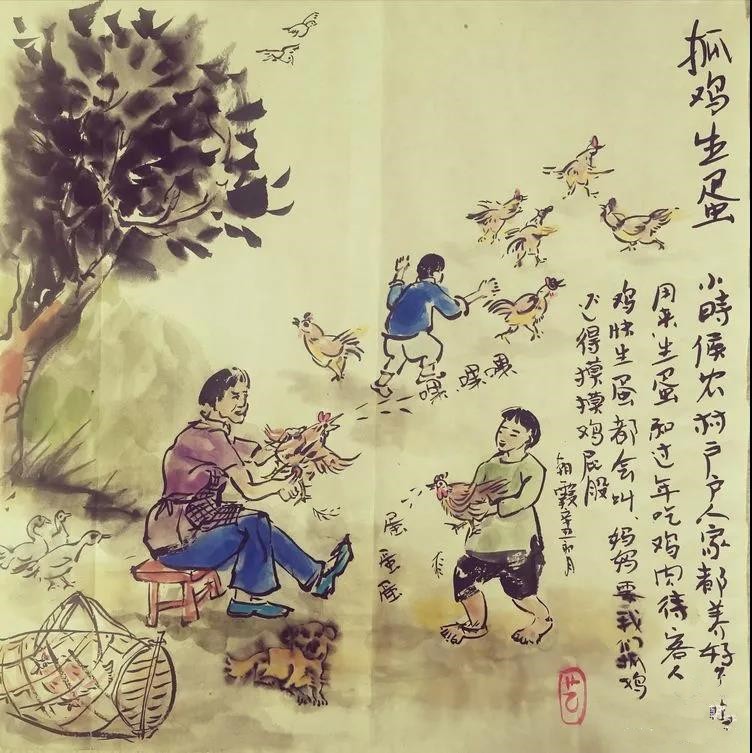 抓鸡生蛋
小時候农村户户人家都养好
用来生蛋和过年吃鸡肉待客人
鸡快生蛋都会叫、妈妈要我们抓鸡
还得摸摸鸡屁股
辛丑
嘿、嘿、嘿
蛋蛋蛋
艺